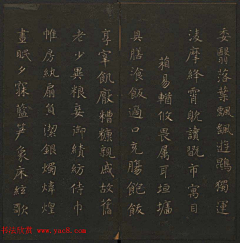 委翳落葉飄颻遊鵾獨運
凌摩絳霄耽讀翫市寓目
箱易輶攸畏屬耳垣墻
具膳飡飯適口充腸飽飫
享宰飢厭糟糠親戚故舊
老少異糧妾御績紡侍巾
帷房紈扇員潔銀燭煒煌
晝眠夕寐籃笋象床絃歌
书法欣赏